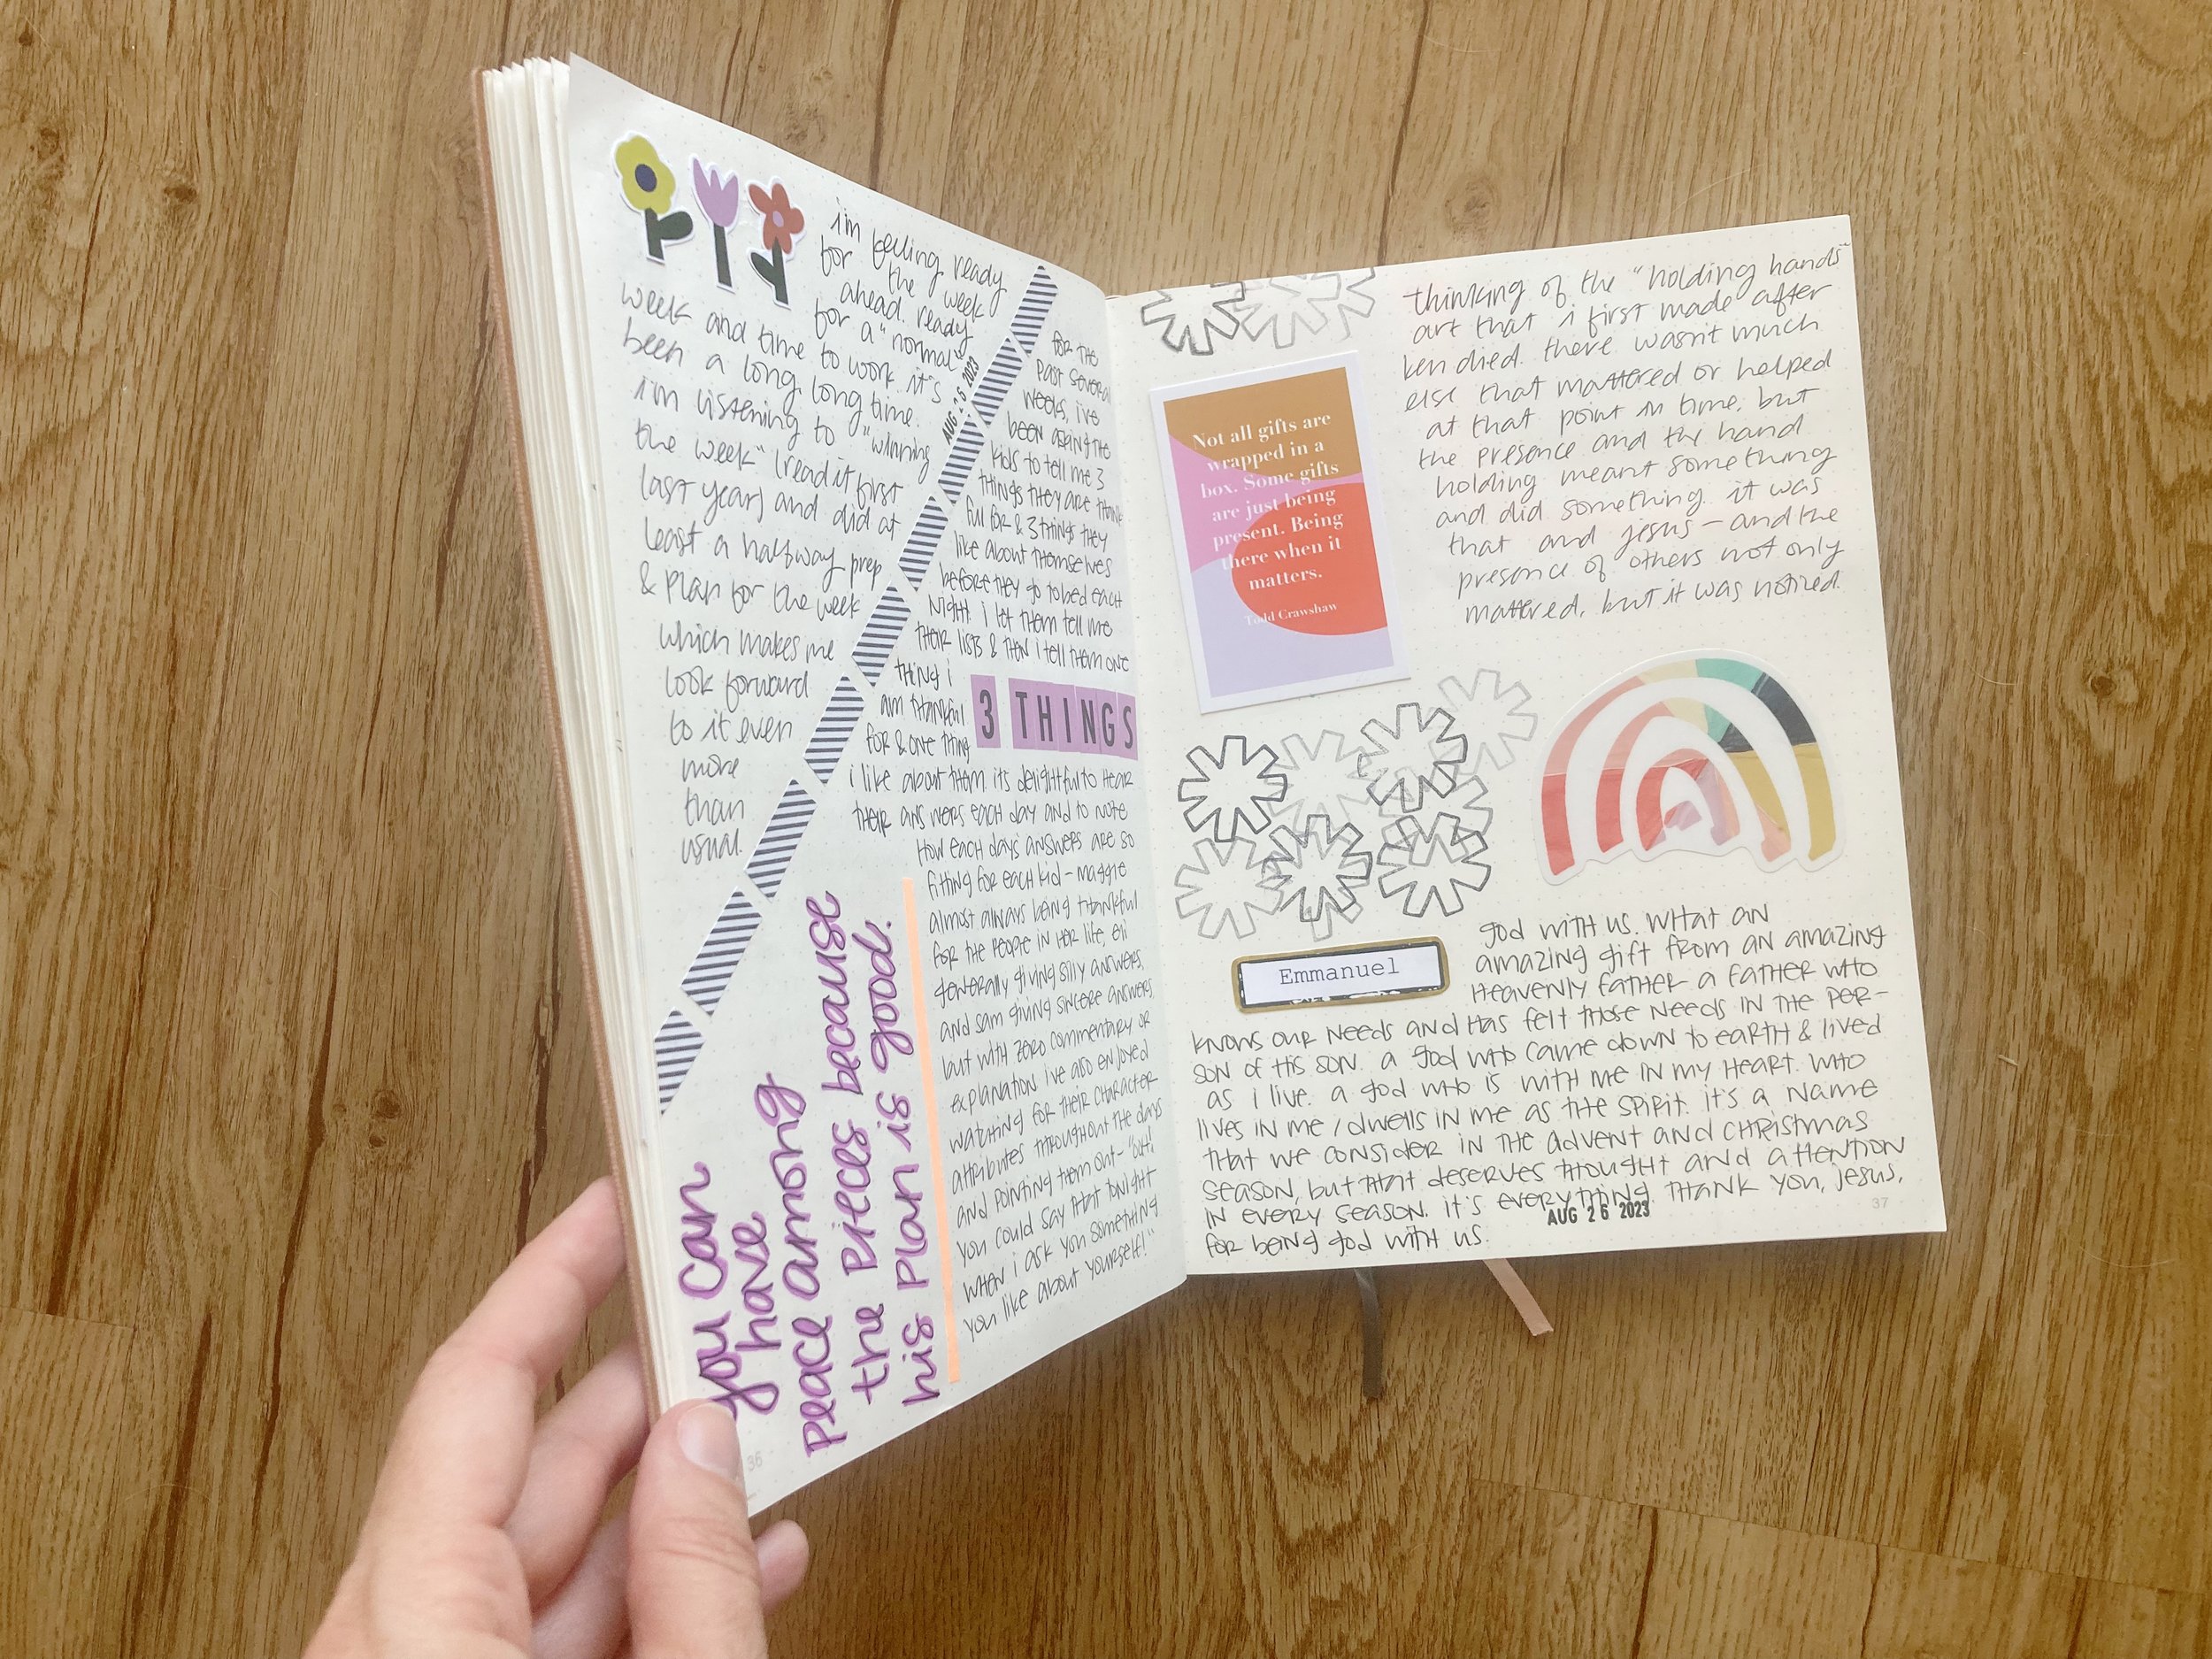 i'm feeling ready
for the week
ahead. ready
for a "normal"
week and time to work. it's
been a long, long time.
i'm listening to "winning
the week" (read it first
last year) and did at
least a halfway prep
& plan for the week
which makes me
look forward
to it even
more
than
usual.
AUG 26 2023
for the
past several
weeks, i've
been asking the
kids to tell me 3
things they are thank
ful for & 3 things they
like about themselves
before they go to bed each
night. i let them tell me
their lists & then i tell them one
thing i
am thankful
for & one thing
3 THINGS
i like about them. it's delightful to hear
their answers each day and to note
how each days answers are so
fitting for each kid - maggie
almost always being thankful
for the people in her life, eli
generally giving silly answers,
and sam giving sincere answers
but with zero commentary or
explanation. i've also enjoyed
watching for their character
attributes throughout the days
and pointing them out - "ooh!
you could say that tonight
when i ask you something
you like about yourself!"
you can
have
peace among
the pieces because
his plan is good.
36
thinking of the "holding hands"
art that i first made after
ken died. there wasn't much
else that mattered or helped
at that point in time. but
the presence and the hand
holding meant something
and did something. it was
that and jesus - and the
presence of others not only
mattered, but it was noticed.
Not all gifts are
wrapped in a
box. Some gifts
are just being
present. Being
there when it
matters.
Todd Crawshaw
Emmanuel
god with us. what an
amazing gift from an amazing
heavenly father. a father who
knows our needs and has felt those needs in the per-
son of his son. a god who came down to earth & lived
as i live. a god who is with me in my heart. who
lives in me / dwells in me as the spirit. it's a name
that we consider in the advent and christmas
season, but that deserves thought and attention
in every season. it's everything. thank you, jesus,
for being god with us.
AUG 26 2023
37